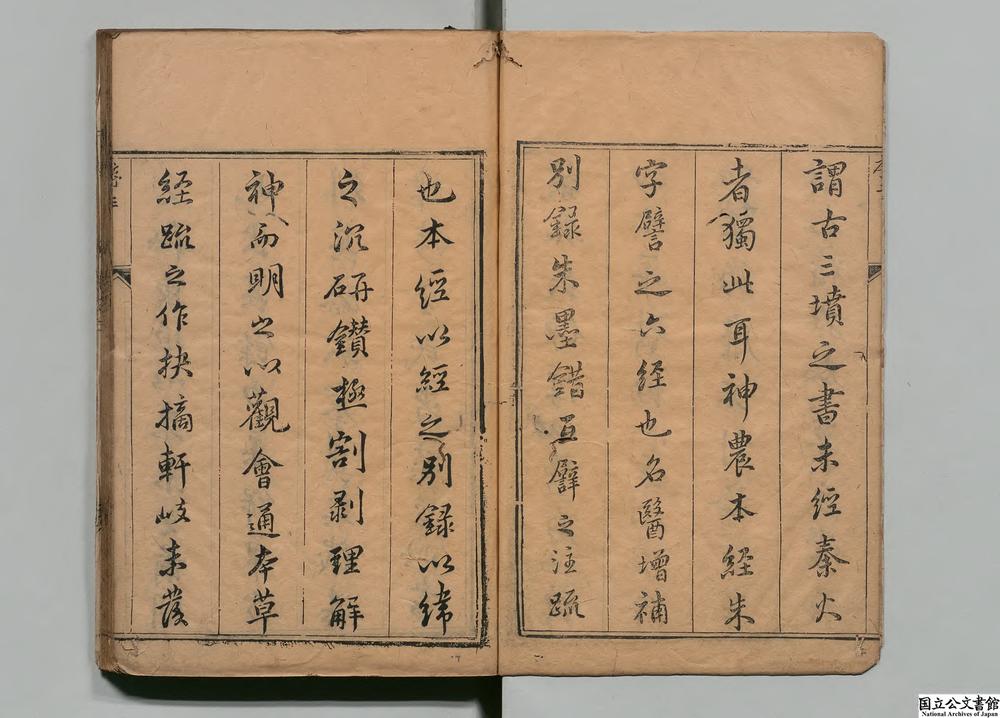 謂古三墳之書未經秦火
者獨此耳神農本経朱
字譬之六経也名醫增補
別錄朱墨錯互譬之注疏
也本經以經之別録以緯
之沉研鑽極割剥理解
神而明之以觀會通本草
経疏之作抉摘軒岐未發
国立公文書館
National Archives of Japan